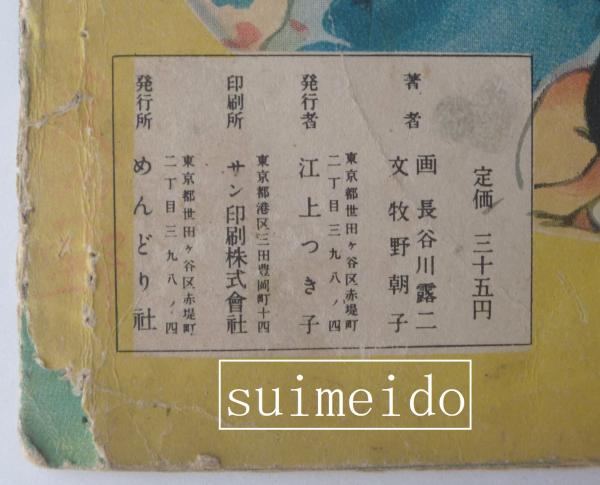 定価 三十五円
著者 画 長谷川露二
文 牧野朝子
東京都世田ヶ谷区赤堤町
二丁目三九八ノ四
発行者 江上つき子
東京都港区三田豊岡町十四
印刷所 サン印刷株式會社
東京都世田ヶ谷区赤堤町
二丁目三九八ノ四
発行所 めんどり社
suimeido